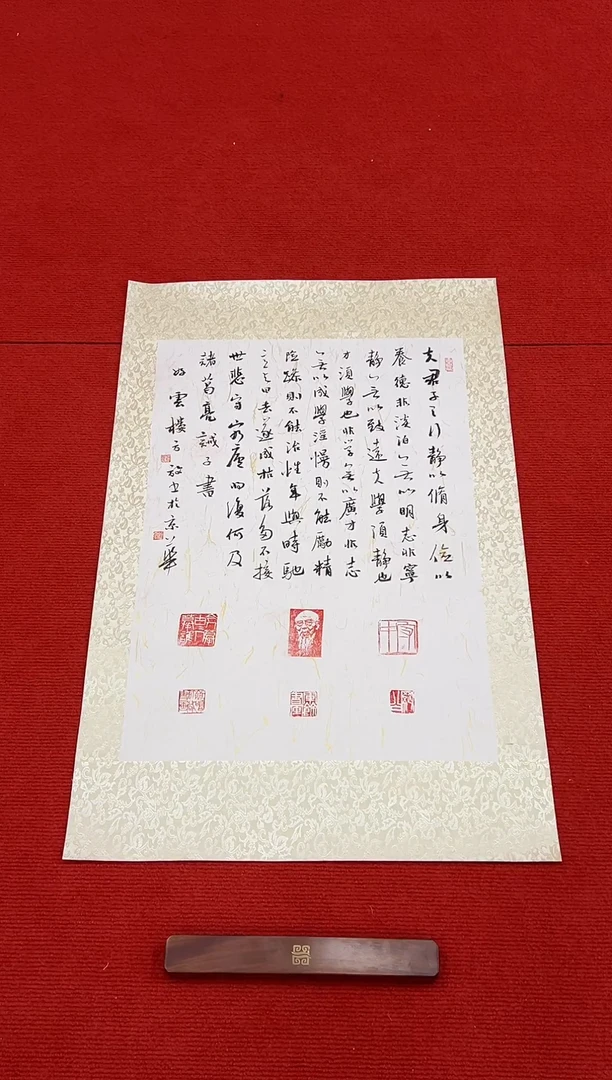 夫君子之行靜以脩身儉以
養德非淡泊無以明志非寧
靜無以致遠夫學須靜也
才須學也非學無以廣才非志
無以成學淫慢則不能勵精
險躁則不能治性年與時馳
意與日去遂成枯落多不接
世悲守窮廬將復何及
諸葛亮誡子書
雲樓方書於京華